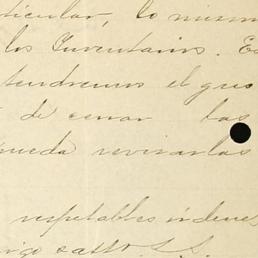 ticular, lo mismo
los Inventarios. Es
tendremos el gus
de cerrar las
pueda revisarlas
respetables órdenes
migo y atto. S. S.